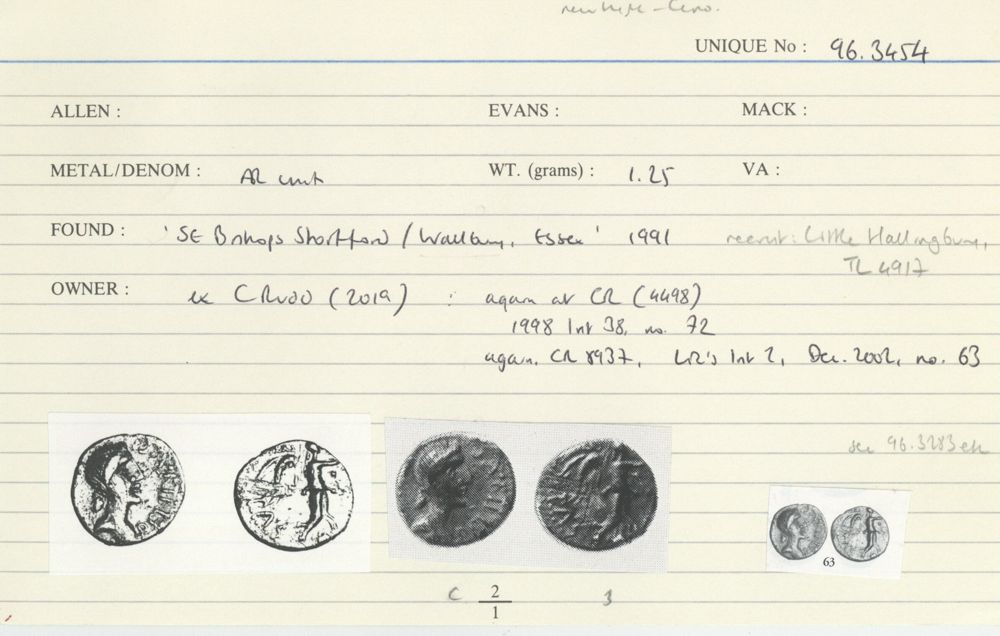 new type - Cuno.
UNIQUE No : 96.3454
ALLEN : EVANS : MACK :
METAL/DENOM : AR unit WT. (grams) : 1.25 VA :
FOUND : 'SE Bishops Stortford / Wallbury, Essex' 1991 recruit: Little Hallingbury,
TL 4917
OWNER : ex CR (2019) : again at CR (4498)
1998 Int 38, no. 72
again, CR 8937, Liz's Int 2, Dec. 2002, no. 63
see 96.3283 etc
63
C 2 3
1